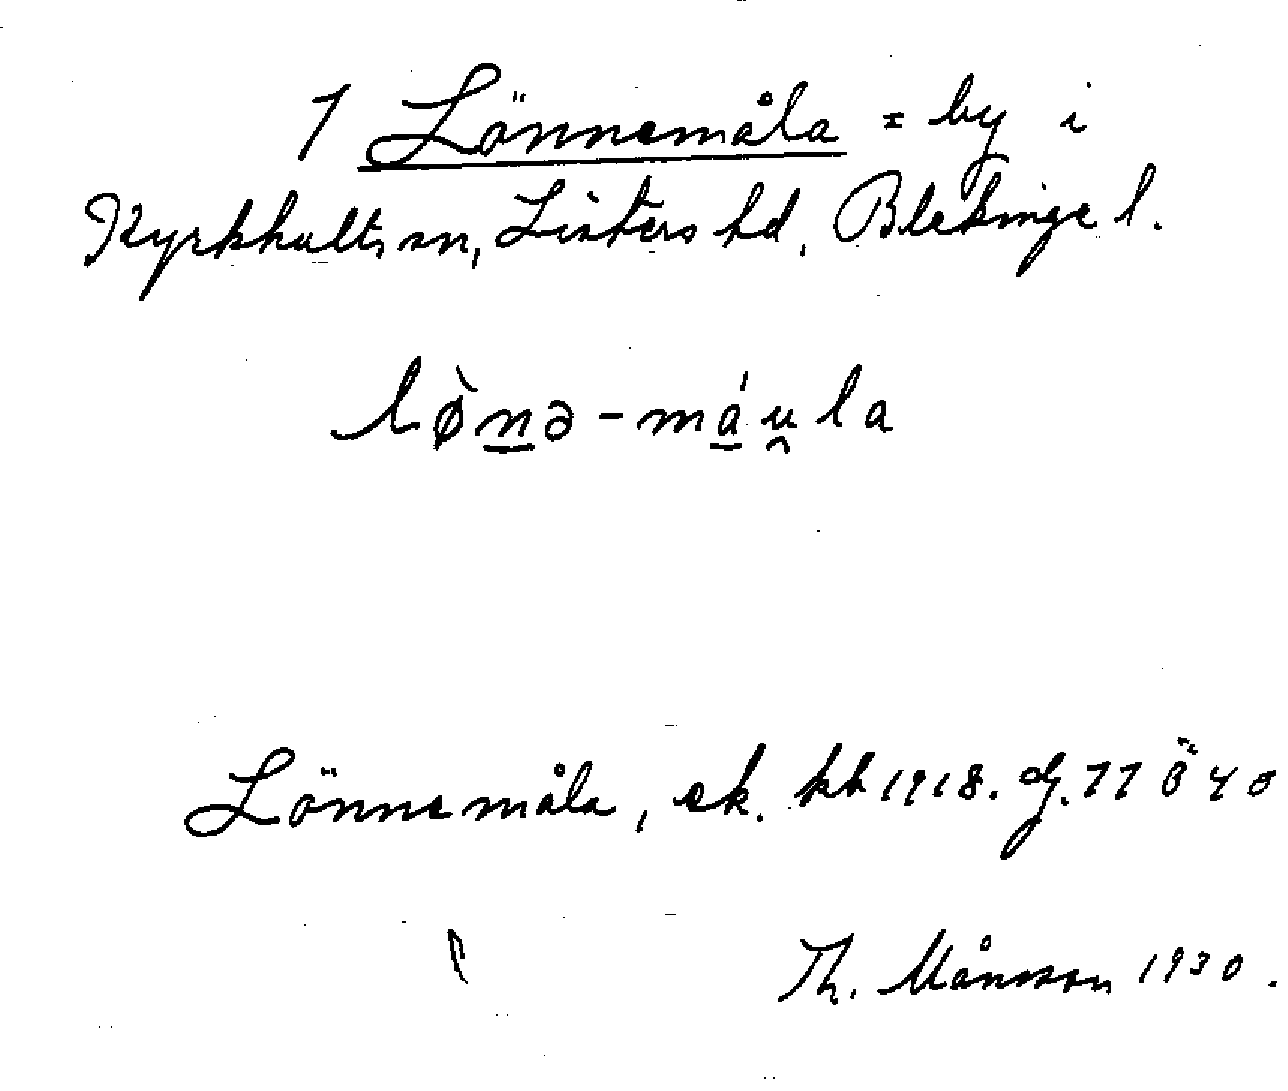 1 Lönnemåla = by i
Kyrkhults sn, Listers hd, Blekinge l.
lø̀n̲ə-má̲u̯la
Lönnemåla, ek. kbl 1918. dj. 77 Ö 40
Th. Månsson 1930.